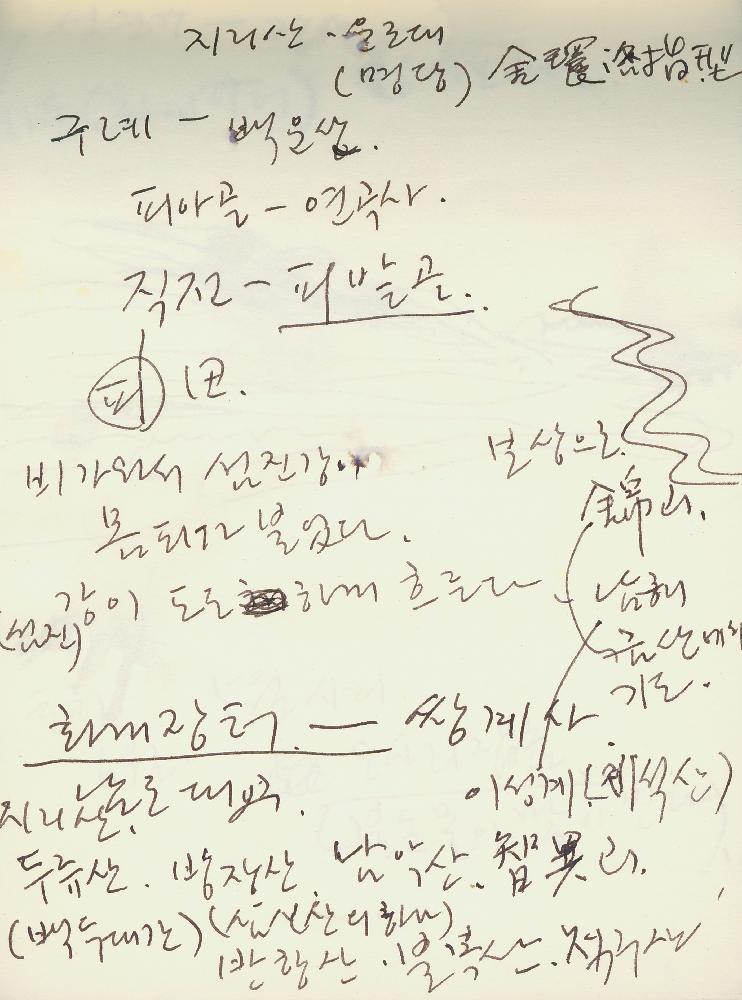 지리산 · 운조대
(명당) 金環落地型
구례 - 백운산.
피아골 - 연곡사.
직전 - 피밭골.
피 田.
비가 와서 섬진강이
보상으로
몸 튀기고 불었다.
錦山.
(섬진)강이 도도하게 흐르다
남해
금산에서
기도.
화개장터. — 쌍계사.
지리산. 남로대맥.
이성계(제석산)
두류산. 방장산. 남악산. 智異山.
(백두대간) (삼신산의 하나)
반항산 · 불복산. 적구산